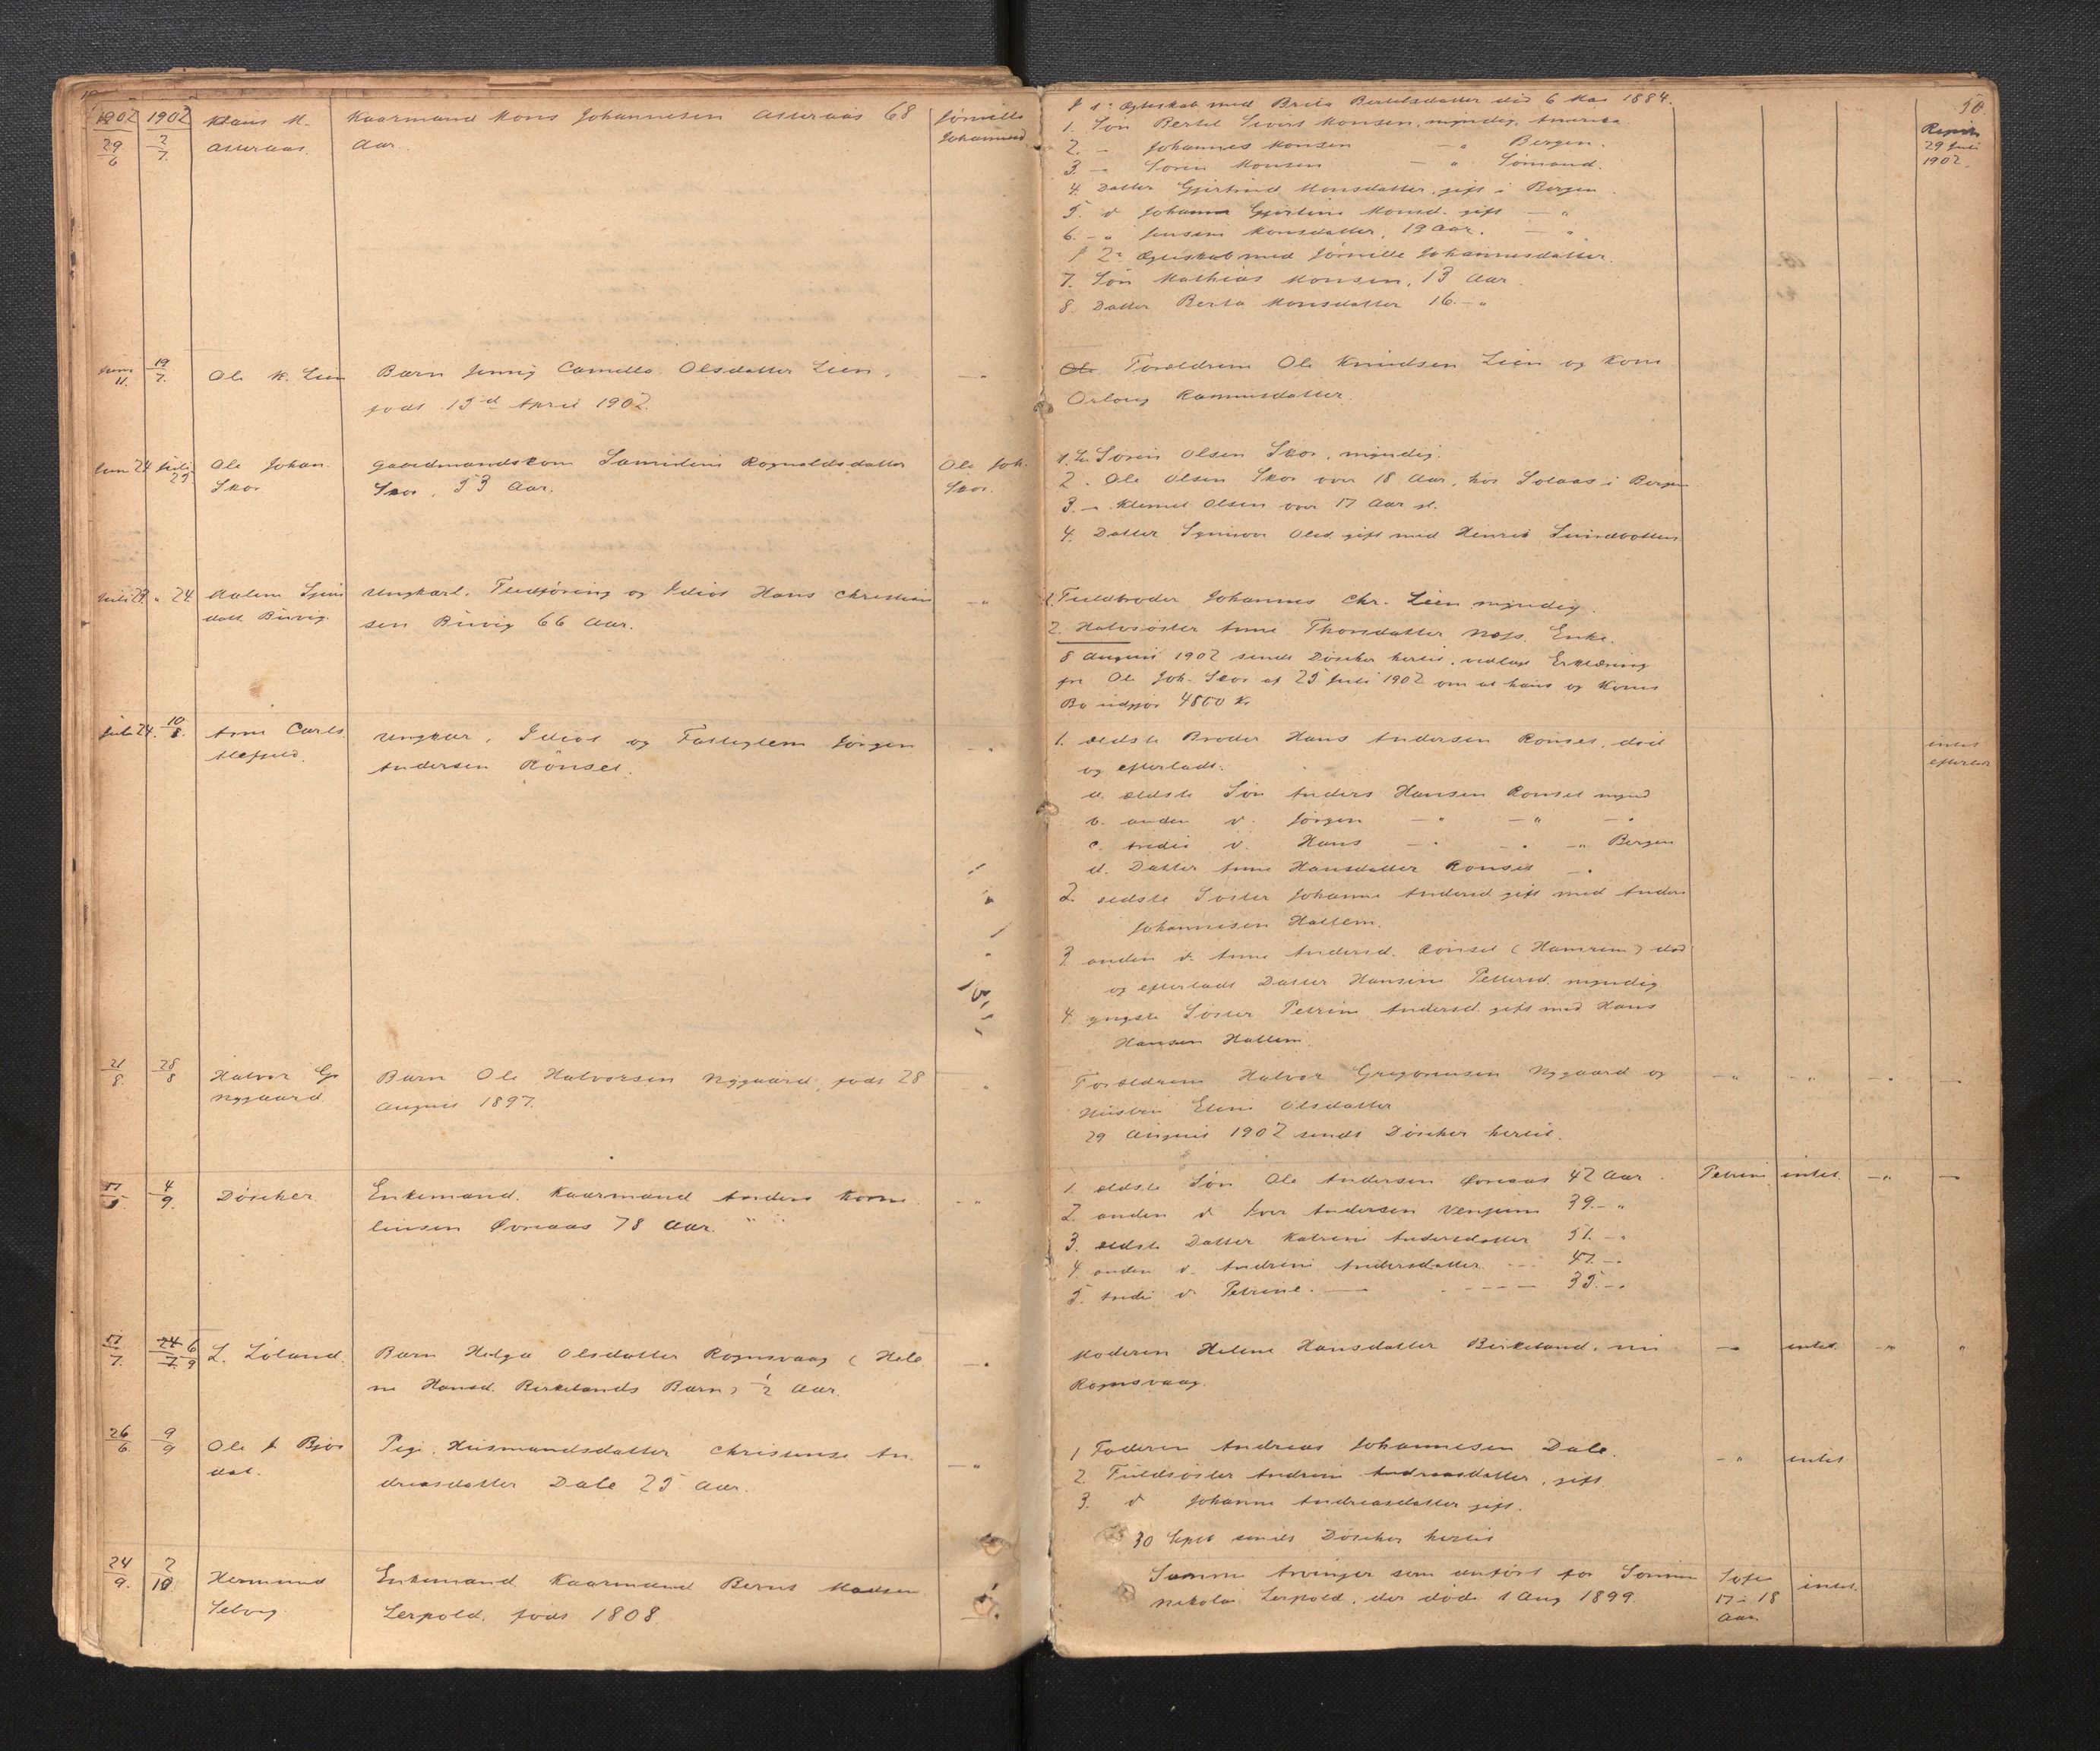 1902 1902 Klaus M. Kaarmand Mons Johannesen Asseraas 68 Jørnille
29/6 2/7 Asseraas. Aar. Johannesd.
19/7 Ole K. Lien Barn Jenny Camilla Olsdatter Lien,
11.
født 13d April 1902.
Juni 24 Juli 25 Ole Johan. Gaardmandskone Rognaldsdatter Ole Joh.
Skor Skor, 53 Aar. Skor.
Juli 23 " 24. Malene
datt. Birvig. Ungkarl, og Idiot Hans Christian
sen Birvig 66 Aar.
Juli 24. 10/8. Arne Carls.
Ungkar, Idiot og Fattiglem Jørgen
Andersen Rönset.
21/8. 28/8 Halvor Gr. Barn Ole Halvorsen Nygaard, født 28
Nygaard August 1897.
4/9. Döscher. Enkemand, Kaarmand Anders Korne
liusen Øvreaas 78 Aar.
17/7. 24/7 6/9 L. Loland. Barn Helga Olsdatter Rognsvaag (Hele
ne Hansd. Birkelands Barn) 1/2 Aar.
26/6. 9/9 Ole J. Bjør Pige. Husmandsdatter Christense An
dal. dreasdatter Dale 25 Aar.
24/9. 2/10 Hermund Enkemand Kaarmand Bernt Madsen
Selvig Lerpold. født 1808.
50.
I 1ste Ægteskab med Brita Bertelsdatter død 6 Mai 1884.
1. Søn Bertel Sivert Monsen, myndig, Amerika.
2. - Johannes Monsen - " Bergen.
3. - Soren Monsen - " Sömand.
29 Juli
1902.
4. Datter Gjertrud Monsdatter, gift i Bergen.
5. d Johanne Gjertine Monsd. gift - "
6. - " Jensine Monsdatter, 19 Aar. - "
I 2det Ægteskab med Jørnille Johannesdatter.
7. Søn Mathias Monsen, 13 Aar.
8. Datter Berta Monsdatter 16. - "
Forældrene Ole Knudsen Lien og Kone
Rasmusdatter.
1. Søren Olsen Skor, myndig.
2. Ole Olsen Skor over 18 Aar, hos Solaas i Bergen
3. - Klemet Olsen over 17 Aar
4. Datter Olsd. gift med Henrik
1. Fuldbroder Johannes Chr. Lien myndig.
2. Halvsøster Anne Thorsdatter Næss. Enke.
8 August 1902 sendt Döscher hertil, vedlagt Erklæring
fra Ole Joh. Skor af 25 Juli 1902 om at hans og Kones
Bo udgjør 4800 Kr
1. ældste Broder Hans Andersen Rönset, død
og efterladt.
intet
efterladt
a. ældste Søn Anders Hansen Rönset mynd
b. anden d. Jörgen - " - " - "
c. tredie d. Hans - " - " - " Bergen
d. Datter Anne Hansdatter Rönset - "
2. ældste Söster Johanne Andersd. gift med Anders
Johannesen Hattem.
3. anden d. Anne Andersd. Rönset (Hamren) död
og efterladt Datter Hansine Pettersd. myndig
4. yngste Söster Petrine Andersd. gift med Hans
Hansen Hattem.
Forældrene Halvor Gregoriusen Nygaard og - " - " - " -
Hustru Eline Olsdatter
29 August 1902 sendt Döscher hertil.
1. ældste Søn Ole Andersen Øvreaas 42 Aar. Petrine intet. - " -
2. anden d Iver Andersen Venjum 39. - "
3. ældste Datter Katrine Andersdatter 51. - "
4. anden d. Andrine Andersdatter - 47. - "
5. tredie d. Petrine. - - 35. - "
Moderen Helene Hansdatter Birkeland, nu - intet - " "
Rognsvaag.
1 Faderen Andreas Johannesen Dale. - " intet
2 Fuldsöster Andrine Andreasdatter, gift
3. d Johanne Andreasdatter gift.
30 Sept sendt Döscher hertil
Samme Arvinger som anført for Sønnen Sofie intet.
Nikolai Lerpold, der døde 1 Aug 1899. 17 à 18
Aar.